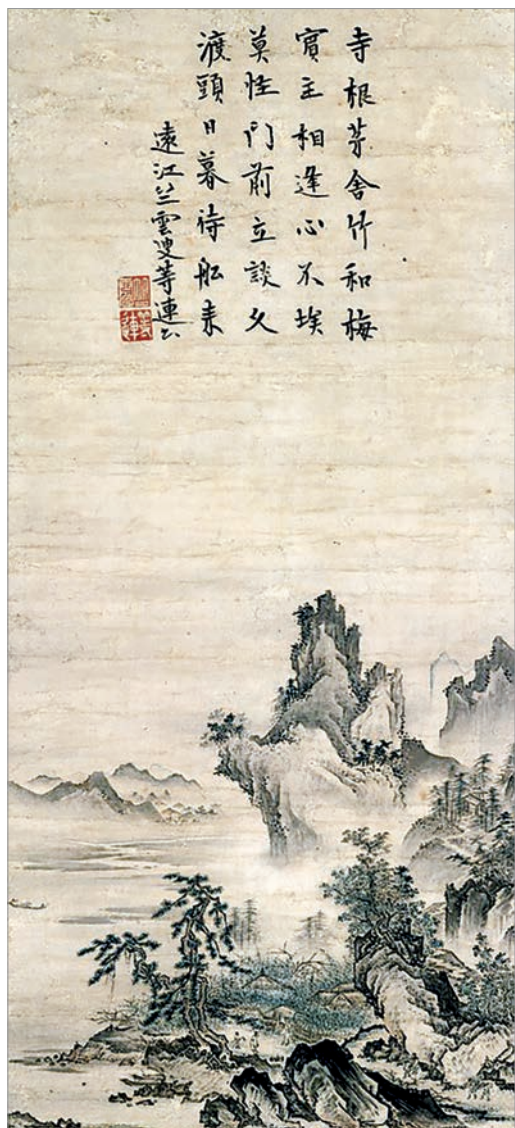 寺根茅舍竹和梅
賓主相逢心不埃
莫恠門前立談久
渡頭日暮待舩来
遠江竺雲叟等連书